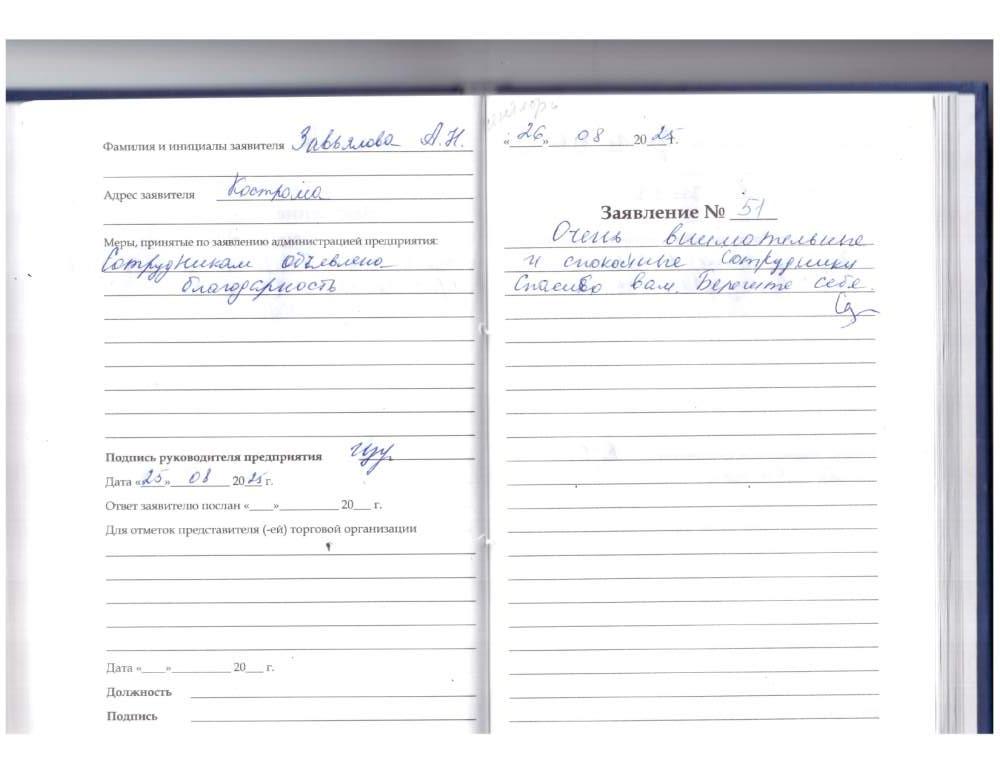 Фамилия и инициалы заявителя Завьялова А.Н.
Адрес заявителя Кострома
Меры, принятые по заявлению администрацией предприятия:
Сотрудникам объевлена
благодарность
Подпись руководителя предприятия
Дата «25» 08 2025 г.
Ответ заявителю послан «____»__________ 20___ г.
Для отметок представителя (-ей) торговой организации
Дата «____»__________ 20___ г.
Должность
Подпись
«26» 08 2025г.
Заявление № 51
Очень внимательные
и спокойные сотрудники
Спасибо вам. Берегите себя.